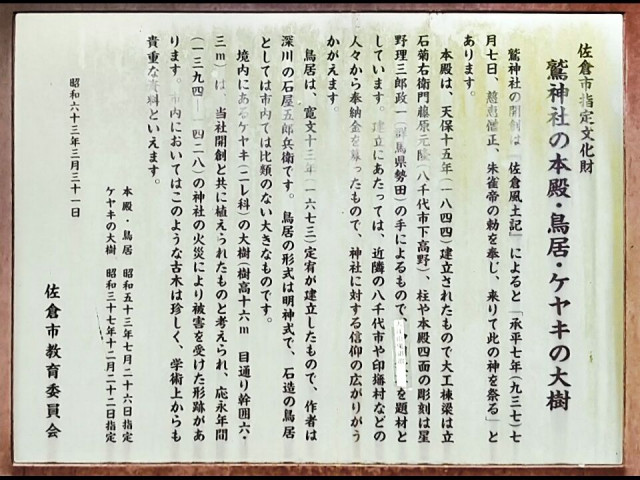 佐倉市指定文化財
鷲神社の本殿・鳥居・ケヤキの大樹
鷲神社の開創は、「佐倉風土記」によると「承平七年(九三七)七
月七日、慈恵僧正、朱雀帝の勅を奉じ、来りて此の神を祭る」と
あります。
本殿は、天保十五年(一八四四)建立されたもので大工棟梁は立
石菊右衛門藤原元隆(八千代市下高野)、柱や本殿四面の彫刻は星
野理三郎政一(群馬県勢田)の手によるもので、を題材と
しています。建立にあたっては、近隣の八千代市や印旛村などの
人々から奉納金を募ったもので、神社に対する信仰の広がりがう
かがえます。
鳥居は、寛文十三年(一六七三)定宥が建立したもので、作者は
深川の石屋五郎兵衛です。鳥居の形式は明神式で、石造の鳥居
としては市内では比類のない大きなものです。
境内にあるケヤキ(ニレ科)の大樹(樹高十六m 目通り幹囲六・
三m)は、当社開創と共に植えられたものと考えられ、応永年間
(一三九四―一四二八)の神社の火災により被害を受けた形跡があ
ります。市内においてはこのような古木は珍しく、学術上からも
貴重な資料といえます。
本殿・鳥居 昭和五十三年七月二十六日指定
ケヤキの大樹 昭和三十七年十二月二十二日指定
昭和六十三年三月三十一日
佐倉市教育委員会